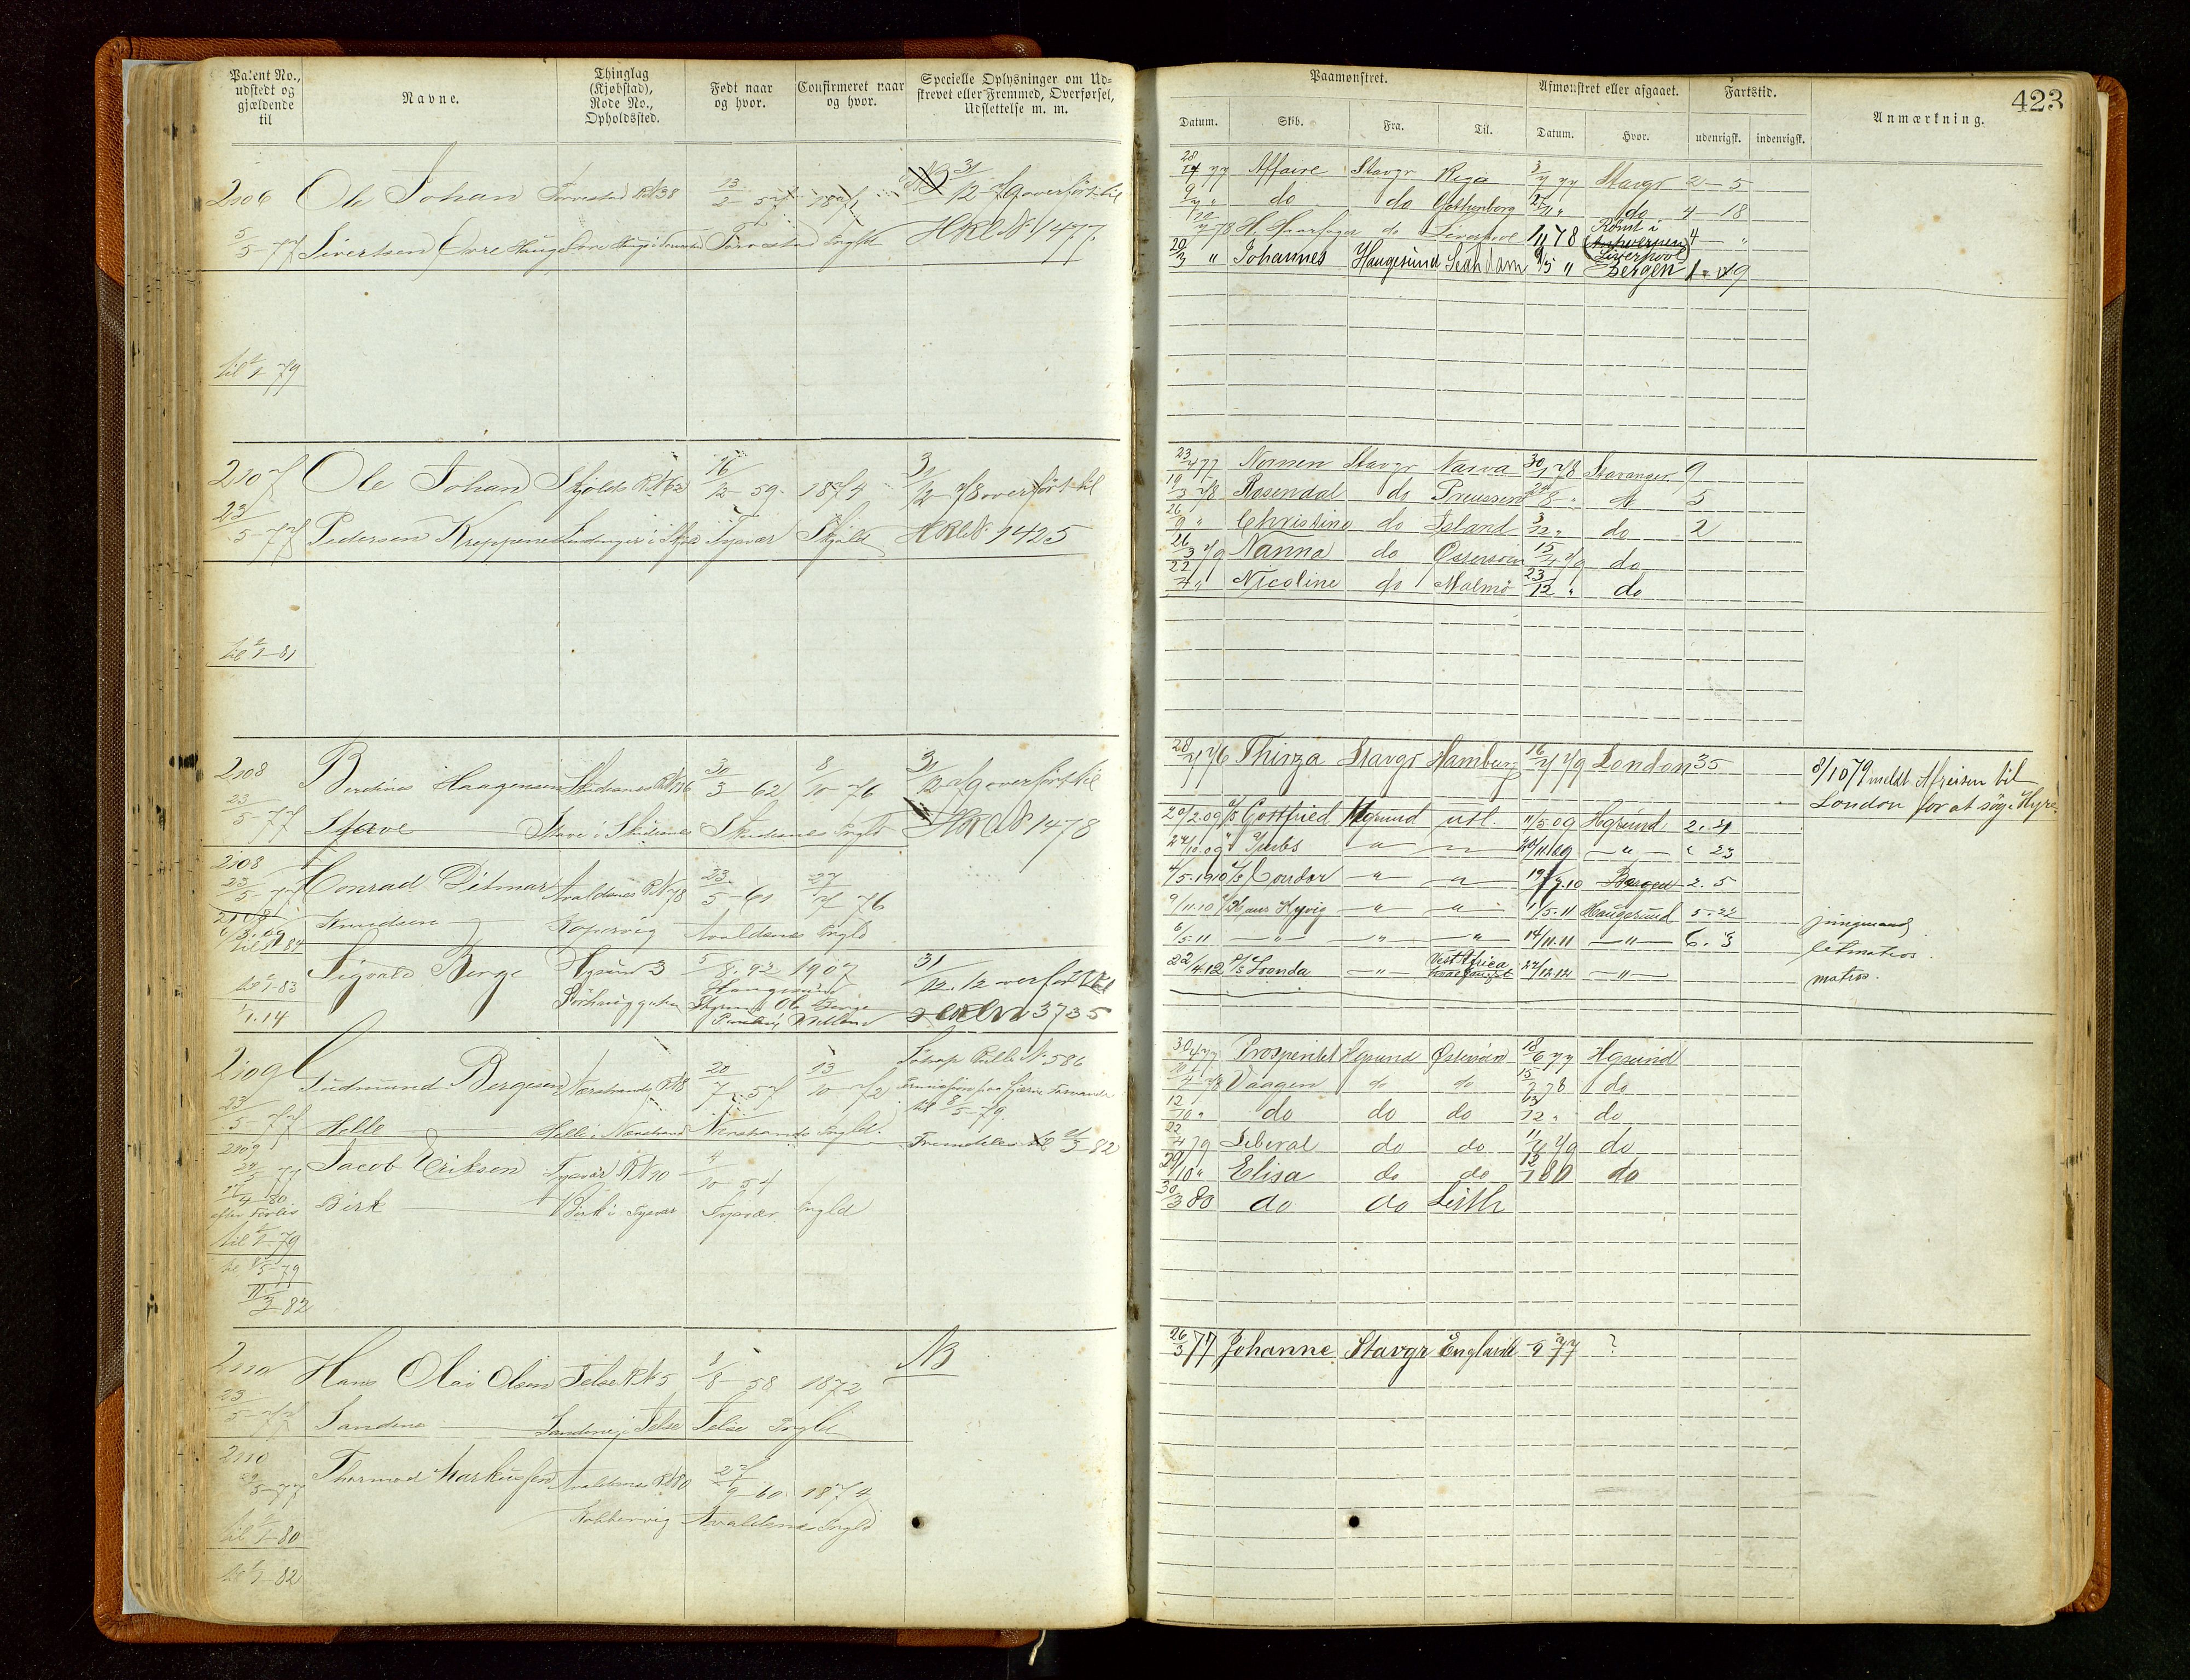 Patent No., udstedt og gjældende til
Navne.
Thinglag (Kjøbstad), Rode No., Opholdssted.
Født naar og hvor.
Confirmeret naar og hvor.
Specielle Oplysninger om Udstrevet eller Fremmed, Overførsel, Udslettelse m. m.
2106 Ole Johan Torvestad R N 38 13/2-57 1871 31/12-79 overført til
5/5-77 Sivertsen Øvre Hauge Torvestad HRL No 1477
til 1/1-79
2107 Ole Johan Skjold R N 62 16/12-59 1874 31/12-78 overført til
23/5-77 Pedersen Kreppene Tysvær Skjold HRL No 1425
til 1/1-81
2108 Berdines Haagensen Skudesnes R N 116 30/3-62 8/10-76 31/12-79 overført til
23/5-77 Stave Stave i Skudesnes Skudesnes Sogld HRL No 1478
2108 Conrad Ditmar Avaldsnes R N 78 23/5-61 27/-76
23/5-77 Knudsen Kopervig Avaldsnes Sogld
til 1/1-84
Sigvald Berge Hgsund 3 5/8.92 1907 31/12.12 overført til
til 1/1-83 Sørhauggaten Haugesund
1/1.14 3735
2109 Gudmund Bergesen Nærstrand R N 8 20/7-57 13/10-72 Rulle No 586
til 8/5-79.
23/5-77 Helle Helle i Nærstrand Nærstrand Sogld. Fremdeles til 3-82
2109 Jacob Eriksen Tysvær R N 10 4/10-54
Birk Birk i Tysvær Tysvær Sogld
4-80
efter Forlis
til 1/1-79
til 8/5-79
3-82
2110 Hans Olai Olsen Jelse R N 5 1/8-58 1872 NB
23/5-77 Sandene Sandene i Jelse Jelse Sogld
2110 Thormod Markussen Avaldsnes R N 80 9-60. 1874
29/5-77 Kobbervig Avaldsnes Sogld
til 1/1-80
til 1/1-82
423
Paamønstret.
Afmønstret eller afgaaet.
Fartstid.
Anmærkning.
Datum. Skib. Fra. Til. Datum. Hvor. udenrigsk. indenrigsk.
28/4 77 Affaire Stavgr Riga 3/7 77 Stavgr 2-5
9/7 " do do Gothenborg 27/11 " do 4-18
78 H. Haarfager do Liverpool 1/11 78 Rømt i Liverpool 4 "
20/3 " Johannes Haugesund 9/5 " Bergen
23/4 77 Nornen Stavgr Narva 30/1 78 Stavanger 9
19/3 78 Rosendal do Preussen 8 " 5
26/9 " Christine do Island 3/12 " do 2
26/3 79 Nanna do Østersøen 15/7 79 do
22/7 " Nicoline do Malmö 23/12 " do
28/7 76 Thirza Stavgr Hamburg 16/7 79 London 35
8/10 79 meldt Afreisen til
London for at søge Hyre
20/2.09 Gottfried Hgsund utl. 11/5 09 Hgsund 2.21
24/10.09 " " 20/11.09 " " 23
4/5.1910 Condor " " 19/7.10 Bergen 2.5
9/11.10 Hans Kyvig " " 1/5.11 Haugesund 5.22 jungmand
6/5.11 " " " 14/11.11 " 6.3 letmatros
22/4.12 Loanda " Vest Africa 24/12.12 " matros
30/4 77 Prosperitet Hgsund Østersøen 18/6 77 Hgsund
78 Vaagen do do 15/7 78 do
12/10 " do do do 12 " do
22/4 79 Liberal do do 79 do
29/10 " Elisa do do 12/1 80 do
30/3 80 do do Leith
26/3 77 Johanne Stavgr England -9 77 ?